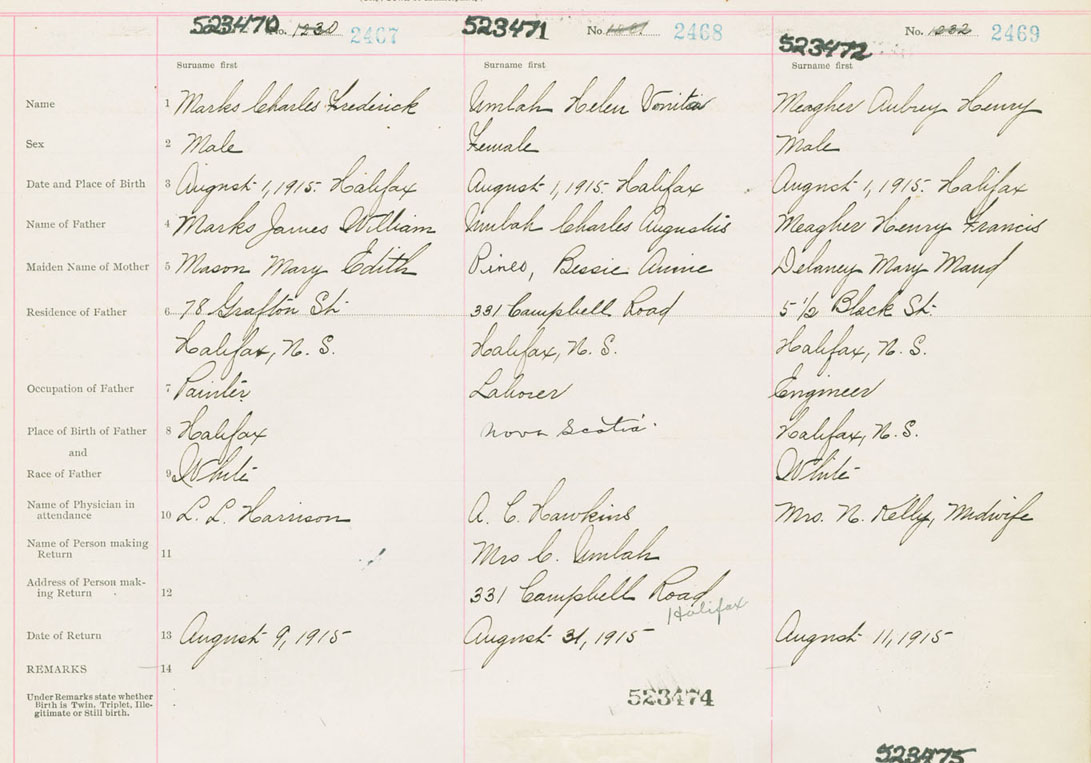 523470 No. 1230 2467 523471 No. 2468 523472 No. 1232 2469
Surname first Surname first Surname first
Name 1 Marks Charles Frederick Umlah Helen Meagher Aubrey Henry
Sex 2 Male Female Male
Date and Place of Birth 3 August 1, 1915. Halifax August 1, 1915. Halifax August 1, 1915. Halifax
Name of Father 4 Marks James William Umlah Charles Augustus Meagher Henry Francis
Maiden Name of Mother 5 Mason Mary Edith Pineo, Bessie Annie Delaney Mary Maud
Residence of Father 6 78 Grafton St. 331 Campbell Road 5 1/2 Black St.
Halifax, N. S. Halifax, N. S. Halifax, N. S.
Occupation of Father 7 Painter Laborer Engineer
Place of Birth of Father 8 Halifax Nova Scotia. Halifax, N. S.
and
Race of Father 9 White White
Name of Physician in
attendance 10 L. L. Harrison A. C. Hawkins Mrs. N. Kelly, Midwife
Name of Person making
Return 11 Mrs C. Umlah
Address of Person mak-
ing Return 12 331 Campbell Road
Halifax
Date of Return 13 August 9, 1915 August 31, 1915 August 11, 1915
REMARKS 14
Under Remarks state whether
Birth is Twin, Triplet, Ille-
gitimate or Still birth.
523474
523475